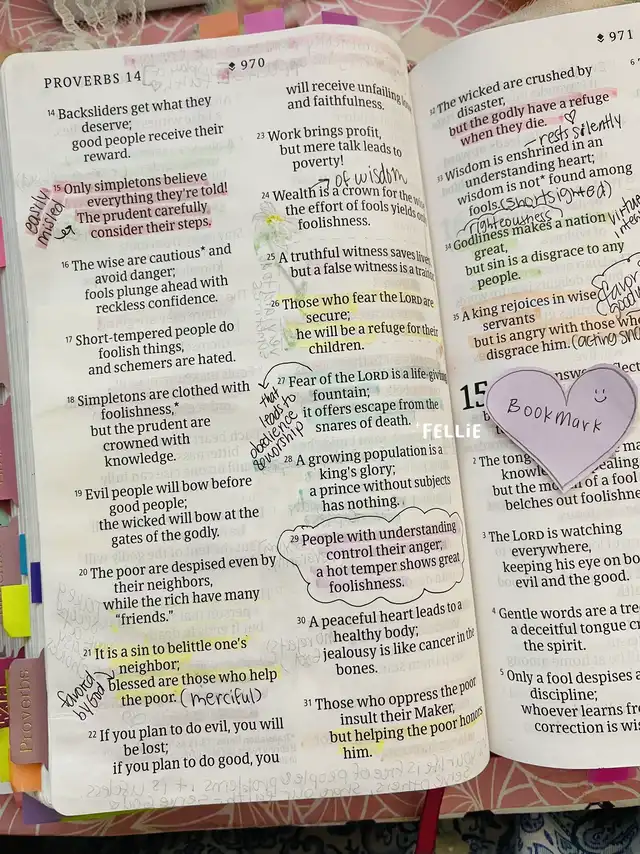 PROVERBS 14
970
14 Backsliders get what they
deserve;
good people receive their
reward.
15 Only simpletons believe
everything they're told!
The prudent carefully
consider their steps.
easily
misled
16 The wise are cautious* and
avoid danger;
fools plunge ahead with
reckless confidence.
17 Short-tempered people do
foolish things,
and schemers are hated.
18 Simpletons are clothed with
foolishness,*
but the prudent are
crowned with
knowledge.
19 Evil people will bow before
good people;
the wicked will bow at the
gates of the godly.
20 The poor are despised even by
their neighbors,
while the rich have many
"friends."
21 It is a sin to belittle one's
neighbor;
blessed are those who help
the poor. (merciful)
favored
by God
22 If you plan to do evil, you will
be lost;
if you plan to do good, you
Proverbs
will receive unfailing
and faithfulness.
23 Work brings profit,
but mere talk leads to
poverty!
of wisdom
24 Wealth is a crown for the
the effort of fools yields
foolishness.
25 A truthful witness saves
but a false witness is a
26 Those who fear the LORD are
secure;
he will be a refuge for their
children.
27 Fear of the LORD is a life-giving
fountain;
it offers escape from the
snares of death.
that
leads to
obedience
& worship
FELLiE
28 A growing population is a
king's glory;
a prince without subjects
has nothing.
29 People with understanding
control their anger;
a hot temper shows great
foolishness.
30 A peaceful heart leads to a
healthy body;
jealousy is like cancer in the
bones.
31 Those who oppress the poor
insult their Maker,
but helping the poor honors
him.
971
32 The wicked are crushed by
disaster,
but the godly have a refuge
when they die.
rests silently
33 Wisdom is enshrined in an
understanding heart;
wisdom is not* found among
fools. (shortsighted)
righteousness
34 Godliness makes a nation
great,
but sin is a disgrace to any
people.
35 A king rejoices in wise
servants
but is angry with those who
disgrace him. (acting
favor
15
BOOKMARK
2 The
but the of a fool
belches out
3 The LORD is watching
everywhere,
keeping his eye on
evil and the good.
4 Gentle words are a
a deceitful tongue
the spirit.
5 Only a fool despises a
discipline;
whoever learns
correction is